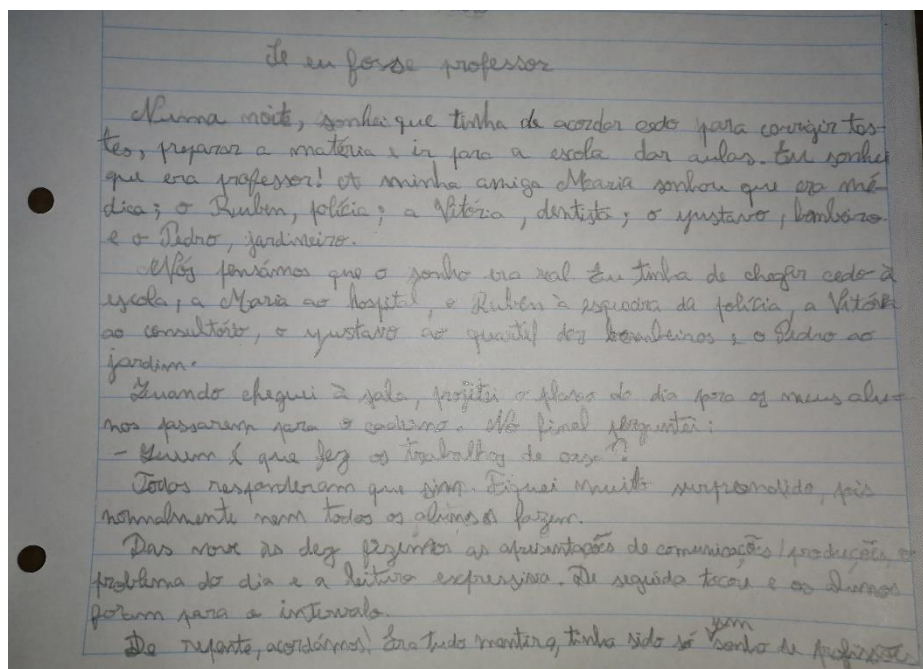 Se eu fosse professor
Numa noite, sonhei que tinha de acordar cedo para corrigir tes-
tes, preparar a matéria e ir para a escola dar aulas. Eu sonhei
que era professor! A minha amiga Maria sonhou que era mé-
dica; o Ruben, polícia; a Vitória, dentista; o Gustavo, bombeiro
e o Pedro, jardineiro.
Nós pensámos que o sonho era real. Eu tinha de chegar cedo à
escola, a Maria ao hospital, o Ruben à esquadra da polícia, a Vitória
ao consultório, o Gustavo ao quartel dos bombeiros e o Pedro ao
jardim.
Quando cheguei à sala, projetei o plano do dia para os meus alu-
nos passarem para o caderno. No final perguntei:
- Quem é que fez os trabalhos de casa?
Todos responderam que sim. Fiquei muito surpreendido, pois
normalmente nem todos os alunos fazem.
Das nove às dez fizemos as apresentações de comunicações/produções, o
problema do dia e a leitura expressiva. De seguida tocou e os alunos
foram para o intervalo.
De repente, acordámos! Era tudo mentira, tinha sido só um sonho de professor